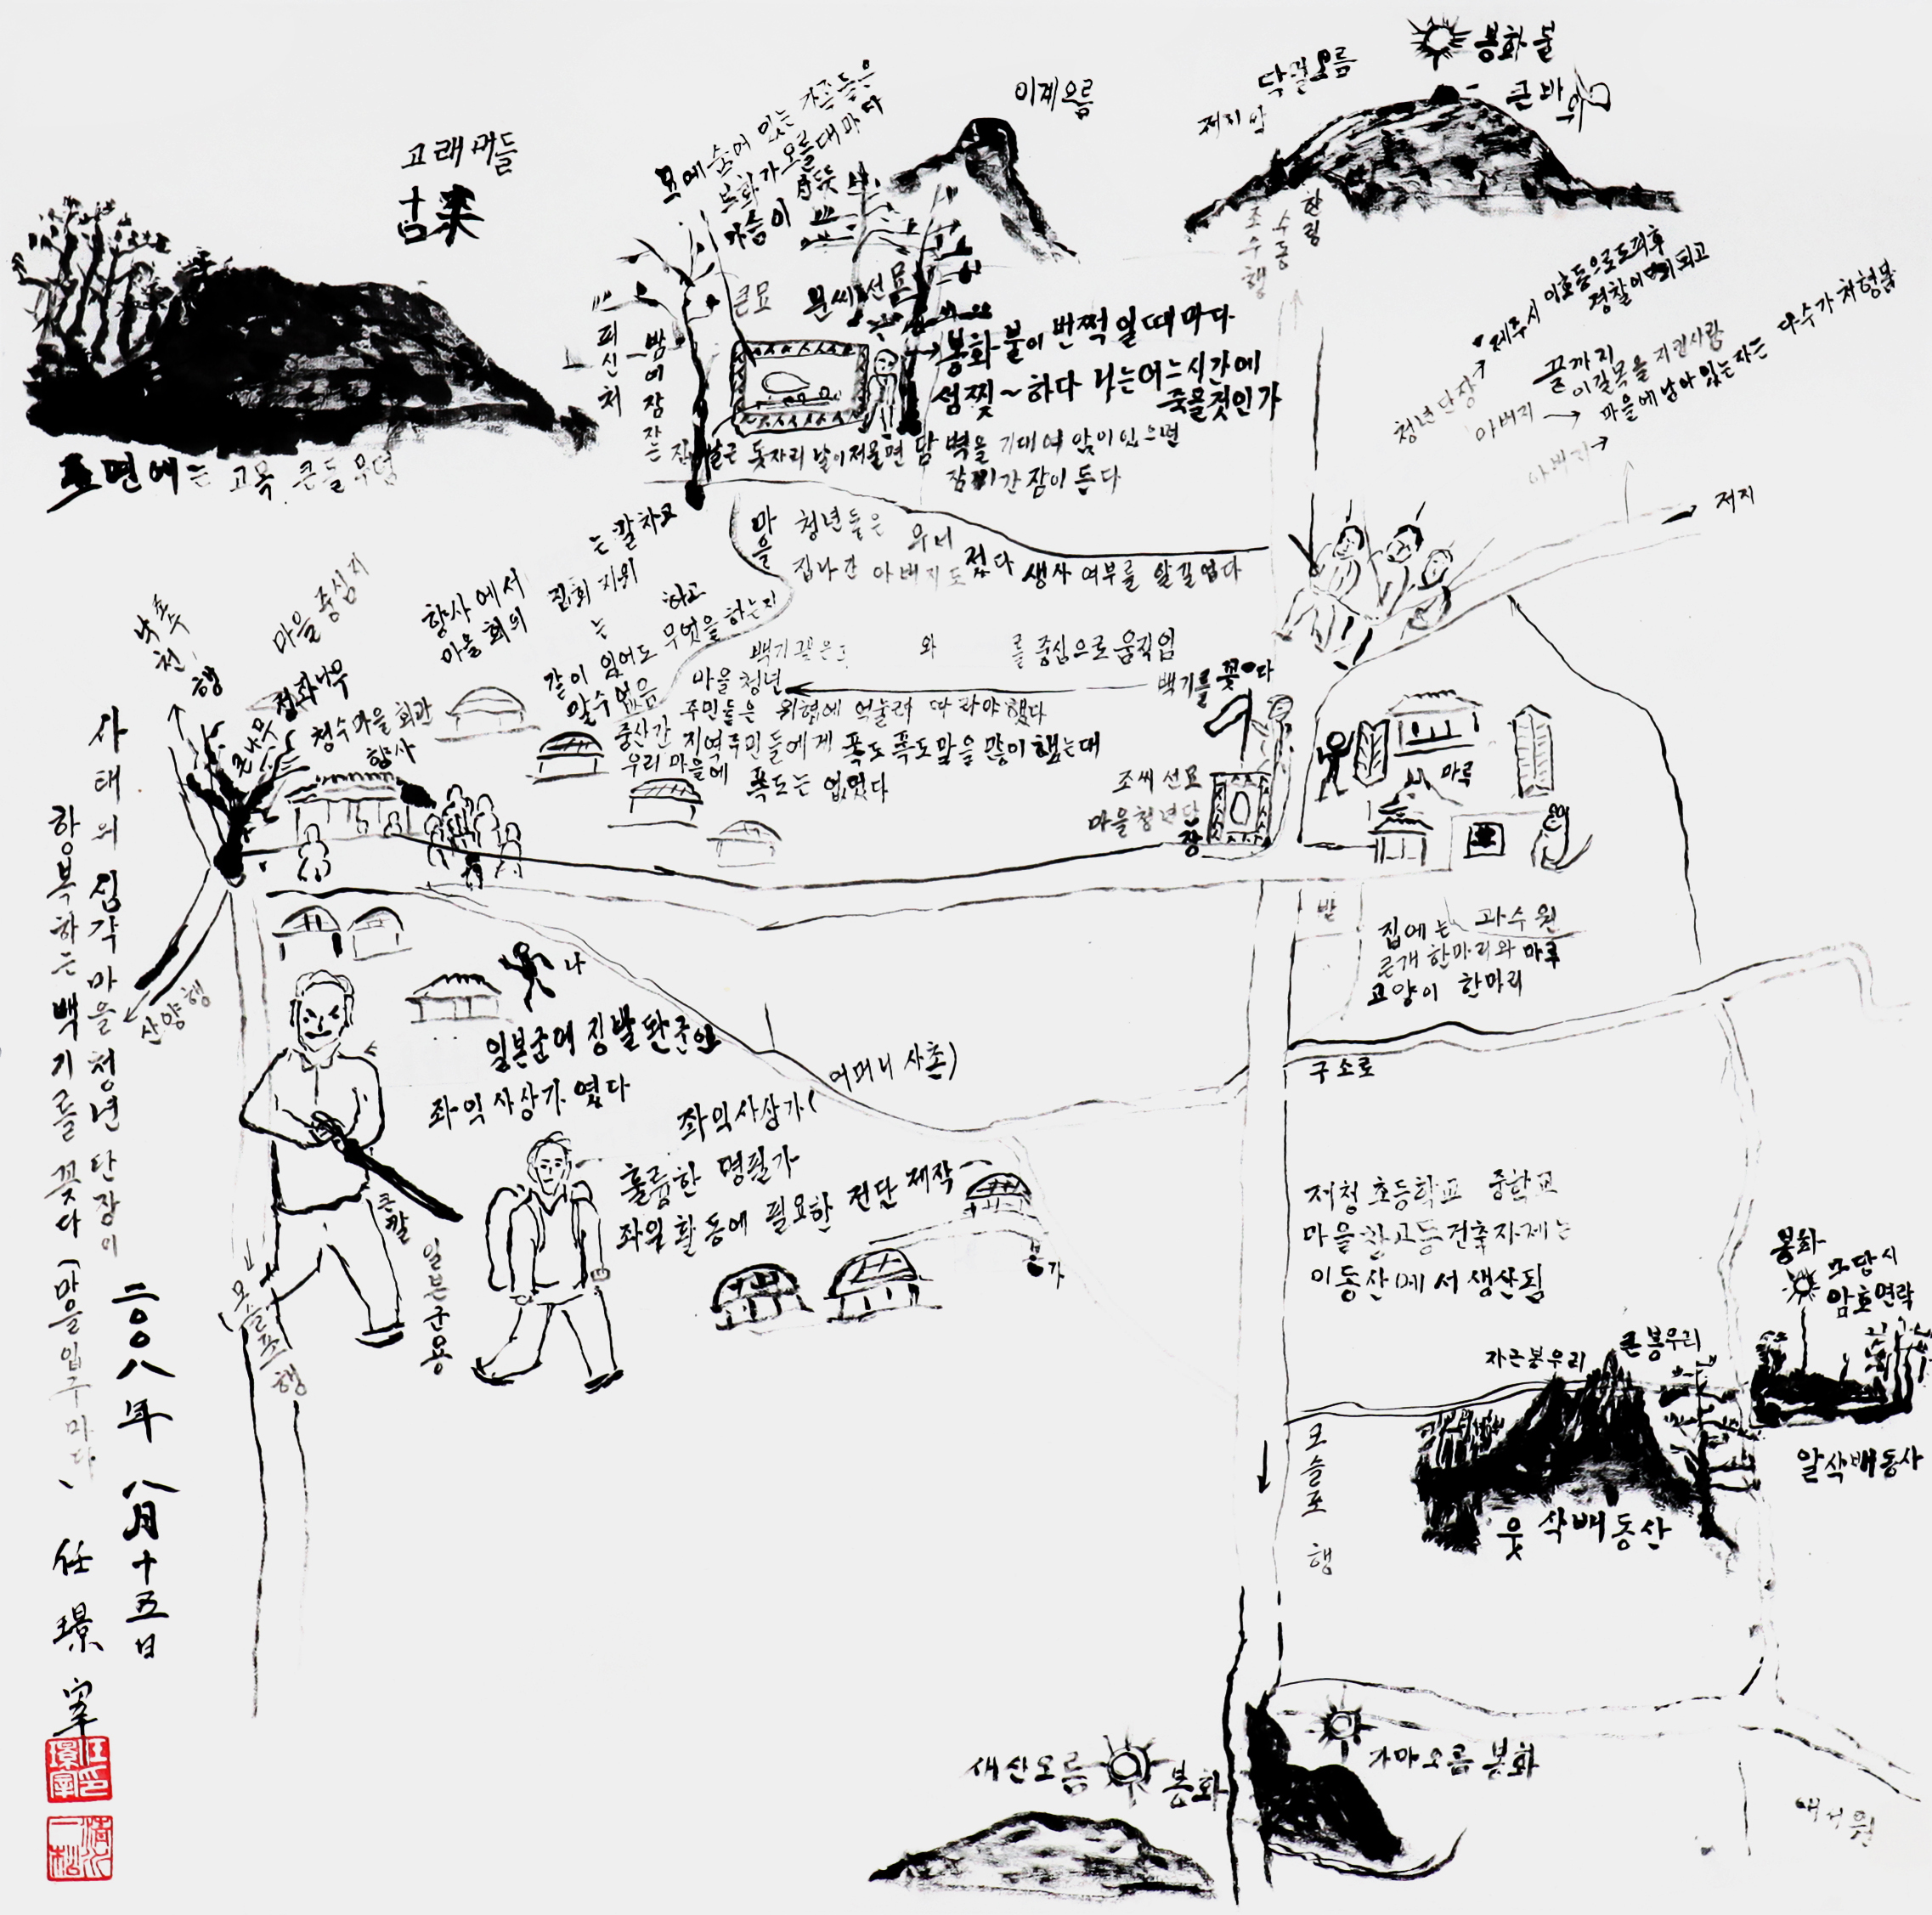 봉화불
큰바위
닥몰오름
저지악
이계오름
고래머들
古来
묘에 숨어 있는 가족들은
봉화가 오를때마다
가슴이
큰묘
문씨선묘
피신처
밤에 잠자는
봉화불이 번쩍일때마다
섬찟~하다 나는 어느시간에
죽을것인가
돗자리 날이저물면 담벽을 기대여 앉이있으면
잠이간 잠이 든다
표면에는 고목 큰돌 무덤
조수행
한림
수동
제주시 이호동으로 도피후
경찰이 되고
청년단장
끝까지
이길목을 지킨사람
아버지
마을에 남아 있는 자는 다수가 처형됨
아버지
저지
마을 청년들은 무너졌다
집나간 아버지도 생사여부를 알길 없다
낙천행
마을 중심지
향사에서
마을 회의
는 칼차고
집회 지위
하고
는
같이 있어도 무엇을 하는지
알수없음
큰나무 정화나무
청수마을 회관
향사
백기 꽂은
와
를 중심으로 움직임
마을 청년
백기를 꽂다
주민들은 위협에 억눌려 따라야했다
중산간 지역주민들에게 폭도 폭도말을 많이 했는데
우리 마을에 폭도는 없었다
조씨 선묘
마을청년단장
마루
밭
집에는 과수원
큰개 한마리와 마루
고양이 한마리
산양행
나
일본군에 징발된 군인
좌익사상가 였다
(어머니 사촌)
좌익사상가
훌륭한 명필가
좌익활동에 필요한 전단 제작
본가
큰칼
일본군용
모슬포행
구소로
저청초등학교 중학교
마을창고등 건축자제는
이동산에서 생산됨
봉화
암호연락
자근봉우리
큰봉우리
알삭배동산
웃 삭배동산
모슬포행
새신오름
봉화
가마오름 봉화
사태의 심각 마을청년단장이
항복하는 백기를 꽂다 (마을입구마다)
二○○八年 八月十五日
任 璟 宰